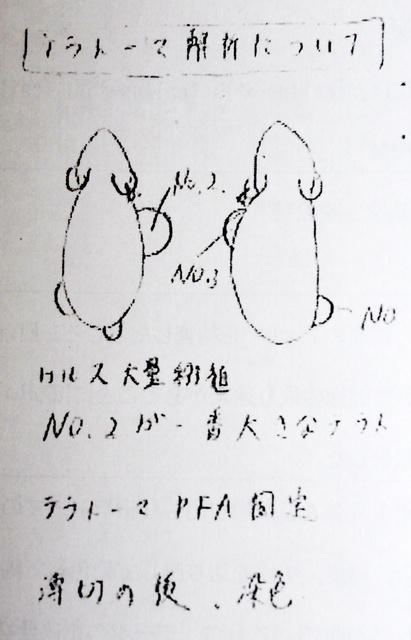 テラトーマ解析について
No.2.
No.3
No
ロルス大量移植
No.2が一番大きなテラト
テラトーマ PFA 固定
薄切の後、染色